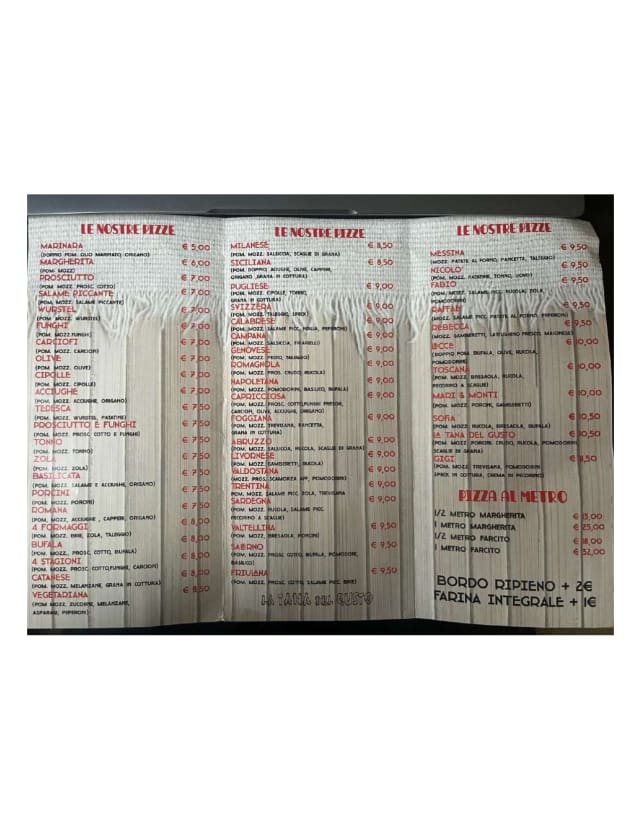 LE NOSTRE PIZZE
MARINARA € 5,00
(DOPPIO POM. OLIO MARINATO, ORIGANO)
MARGHERITA € 6,00
(POM. MOZZ)
PROSCIUTTO € 7,00
(POM. MOZZ. PROSC. COTTO)
SALAME PICCANTE € 7,00
(POM. MOZZ. SALAME PICCANTE)
WURSTEL € 7,00
(POM. MOZZ. WURSTEL)
FUNGHI € 7,00
(POM. MOZZ.FUNGHI)
CARCIOFI € 7,00
(POM. MOZZ. CARCIOFI)
OLIVE € 7,00
(POM. MOZZ. OLIVE)
CIPOLLE € 7,00
(POM. MOZZ. CIPOLLE)
ACCIUGHE € 7,00
(POM. MOZZ. ACCIUGHE, ORIGANO)
TEDESCA € 7,50
(POM. MOZZ. WURSTEL, PATATINE)
PROSCIUTTO E FUNGHI € 7,50
(POM. MOZZ. PROSC. COTTO E FUNGHI)
TONNO € 7,50
(POM. MOZZ. TONNO)
ZOLA € 7,50
(POM. MOZZ. ZOLA)
BASILICATA € 7,50
(POM. MOZZ. SALAME E ACCIUGHE, ORIGANO)
PORCINI € 7,50
(POM. MOZZ. PORCINI)
ROMANA € 7,50
(POM. MOZZ, ACCIUGHE , CAPPERI, ORIGANO)
4 FORMAGGI € 8,00
(POM. MOZZ. BRIE, ZOLA, TALEGGIO)
BUFALA € 8,00
(POM. MOZZ., PROSC. COTTO, BUFALA)
4 STAGIONI € 8,00
(POM. MOZZ. PROSC. COTTO,FUNGHI, CARCIOFI)
CATANESE € 8,00
(POM. MOZZ. MELANZANE, GRANA IN COTTURA)
VEGETARIANA € 8,50
(POM. MOZZ. ZUCCHINE, MELANZANE,
ASPARAGI, PEPERONI)
LE NOSTRE PIZZE
MILANESE € 8,50
(POM. MOZZ. SALSICCIA, SCAGLIE DI GRANA)
SICILIANA € 8,50
(POM. DOPPIO, ACCIUGHE, OLIVE, CAPPERI,
ORIGANO ,GRANA IN COTTURA)
PUGLIESE € 9,00
(POM. MOZZ. CIPOLLE, TONNO,
GRANA IN COTTURA)
SVIZZERA € 9,00
(POM. MOZZ. TALEGGIO, SPECK)
CALABRESE € 9,00
(POM. MOZZ. SALAME PICC., NDUJA, PEPERONI)
CAMPANA € 9,00
(POM. MOZZ. SALSICCIA, FRIARIELLI)
GENOVESE € 9,00
(POM. MOZZ. PESTO, TALEGGIO)
ROMAGNOLA € 9,00
(POM. MOZZ. PROS. CRUDO, RUCOLA)
NAPOLETANA € 9,00
(POM. MOZZ. POMODORINI, BASILICO, BUFALA)
CAPRICCIOSA € 9,00
(POM. MOZZ. PROSC. COTTO,FUNGHI FRESCHI,
CARCIOFI, OLIVE, ACCIUGHE, ORIGANO)
FOGGIANA € 9,00
(POM. MOZZ. TREVISANA, PANCETTA,
GRANA IN COTTURA)
ABRUZZO € 9,00
(POM. MOZZ. SALSICCIA, RUCOLA, SCAGLIE DI GRANA)
LIVORNESE € 9,00
(POM. MOZZ. GAMBERETTI, RUCOLA)
VALDOSTANA € 9,00
(POM. MOZZ. PROS. SCAMORZA AFF, POMODORINI)
TRENTINA € 9,00
POM. MOZZ. SALAME PICC. ZOLA, TREVISANA
SARDEGNA € 9,00
(POM. MOZZ. RUCOLA, SALAME PICC.
PECORINO A SCAGLIE)
VALTELLINA € 9,50
(POM. MOZZ, BRESAOLA, PORCINI)
SALERNO € 9,50
(POM. MOZZ. PROSC. COTTO, BUFALA, POMODORI,
BASILICO)
FRIULANA € 9,50
(POM. MOZZ, PROSC. COTTO, SALAME PIC, BRIE)
LA TANA DEL GUSTO
LE NOSTRE PIZZE
MESSINA € 9,50
(MOZZ. PATATE AL FORNO, PANCETTA, TALEGGIO)
NICOLO' € 9,50
(POM. MOZZ, PATATINE, TONNO, UOVO)
FABIO € 9,50
(POM. MOZZ, SALAME, PICC, RUCOLA, ZOLA,
POMODORINI)
RAFFAE € 9,50
(MOZZ, SALAME PICC, PATATE AL FORNO, PEPERONI)
REBECCA € 9,50
(MOZZ, GAMBERETTI, LATTUGHINO FRESCO, MAIONESE)
LECCE € 10,00
(DOPPIO POM. BUFALA, OLIVE, RUCOLA,
POMODORINI)
TOSCANA € 10,00
(POM. MOZZ, BRESAOLA, RUCOLA,
PECORINO A SCAGLIE)
MARI & MONTI € 10,00
(POM. MOZZ, PORCINI, GAMBERETTI)
SOFIA € 10,50
(POM. MOZZ, RUCOLA, BRESAOLA, BUFALA)
LA TANA DEL GUSTO € 10,50
(POM. MOZZ, PORCINI, CRUDO, RUCOLA, POMODORINI
SCAGLIE DI GRANA)
GIGI € 8,50
(POM. MOZZ, TREVISANA, POMODORINI
SPECK IN COTTURA, CREMA DI PECORINO)
PIZZA AL METRO
1/2 METRO MARGHERITA € 13,00
1 METRO MARGHERITA € 25,00
1/2 METRO FARCITO € 18,00
1 METRO FARCITO € 32,00
BORDO RIPIENO + 2€
FARINA INTEGRALE + 1€